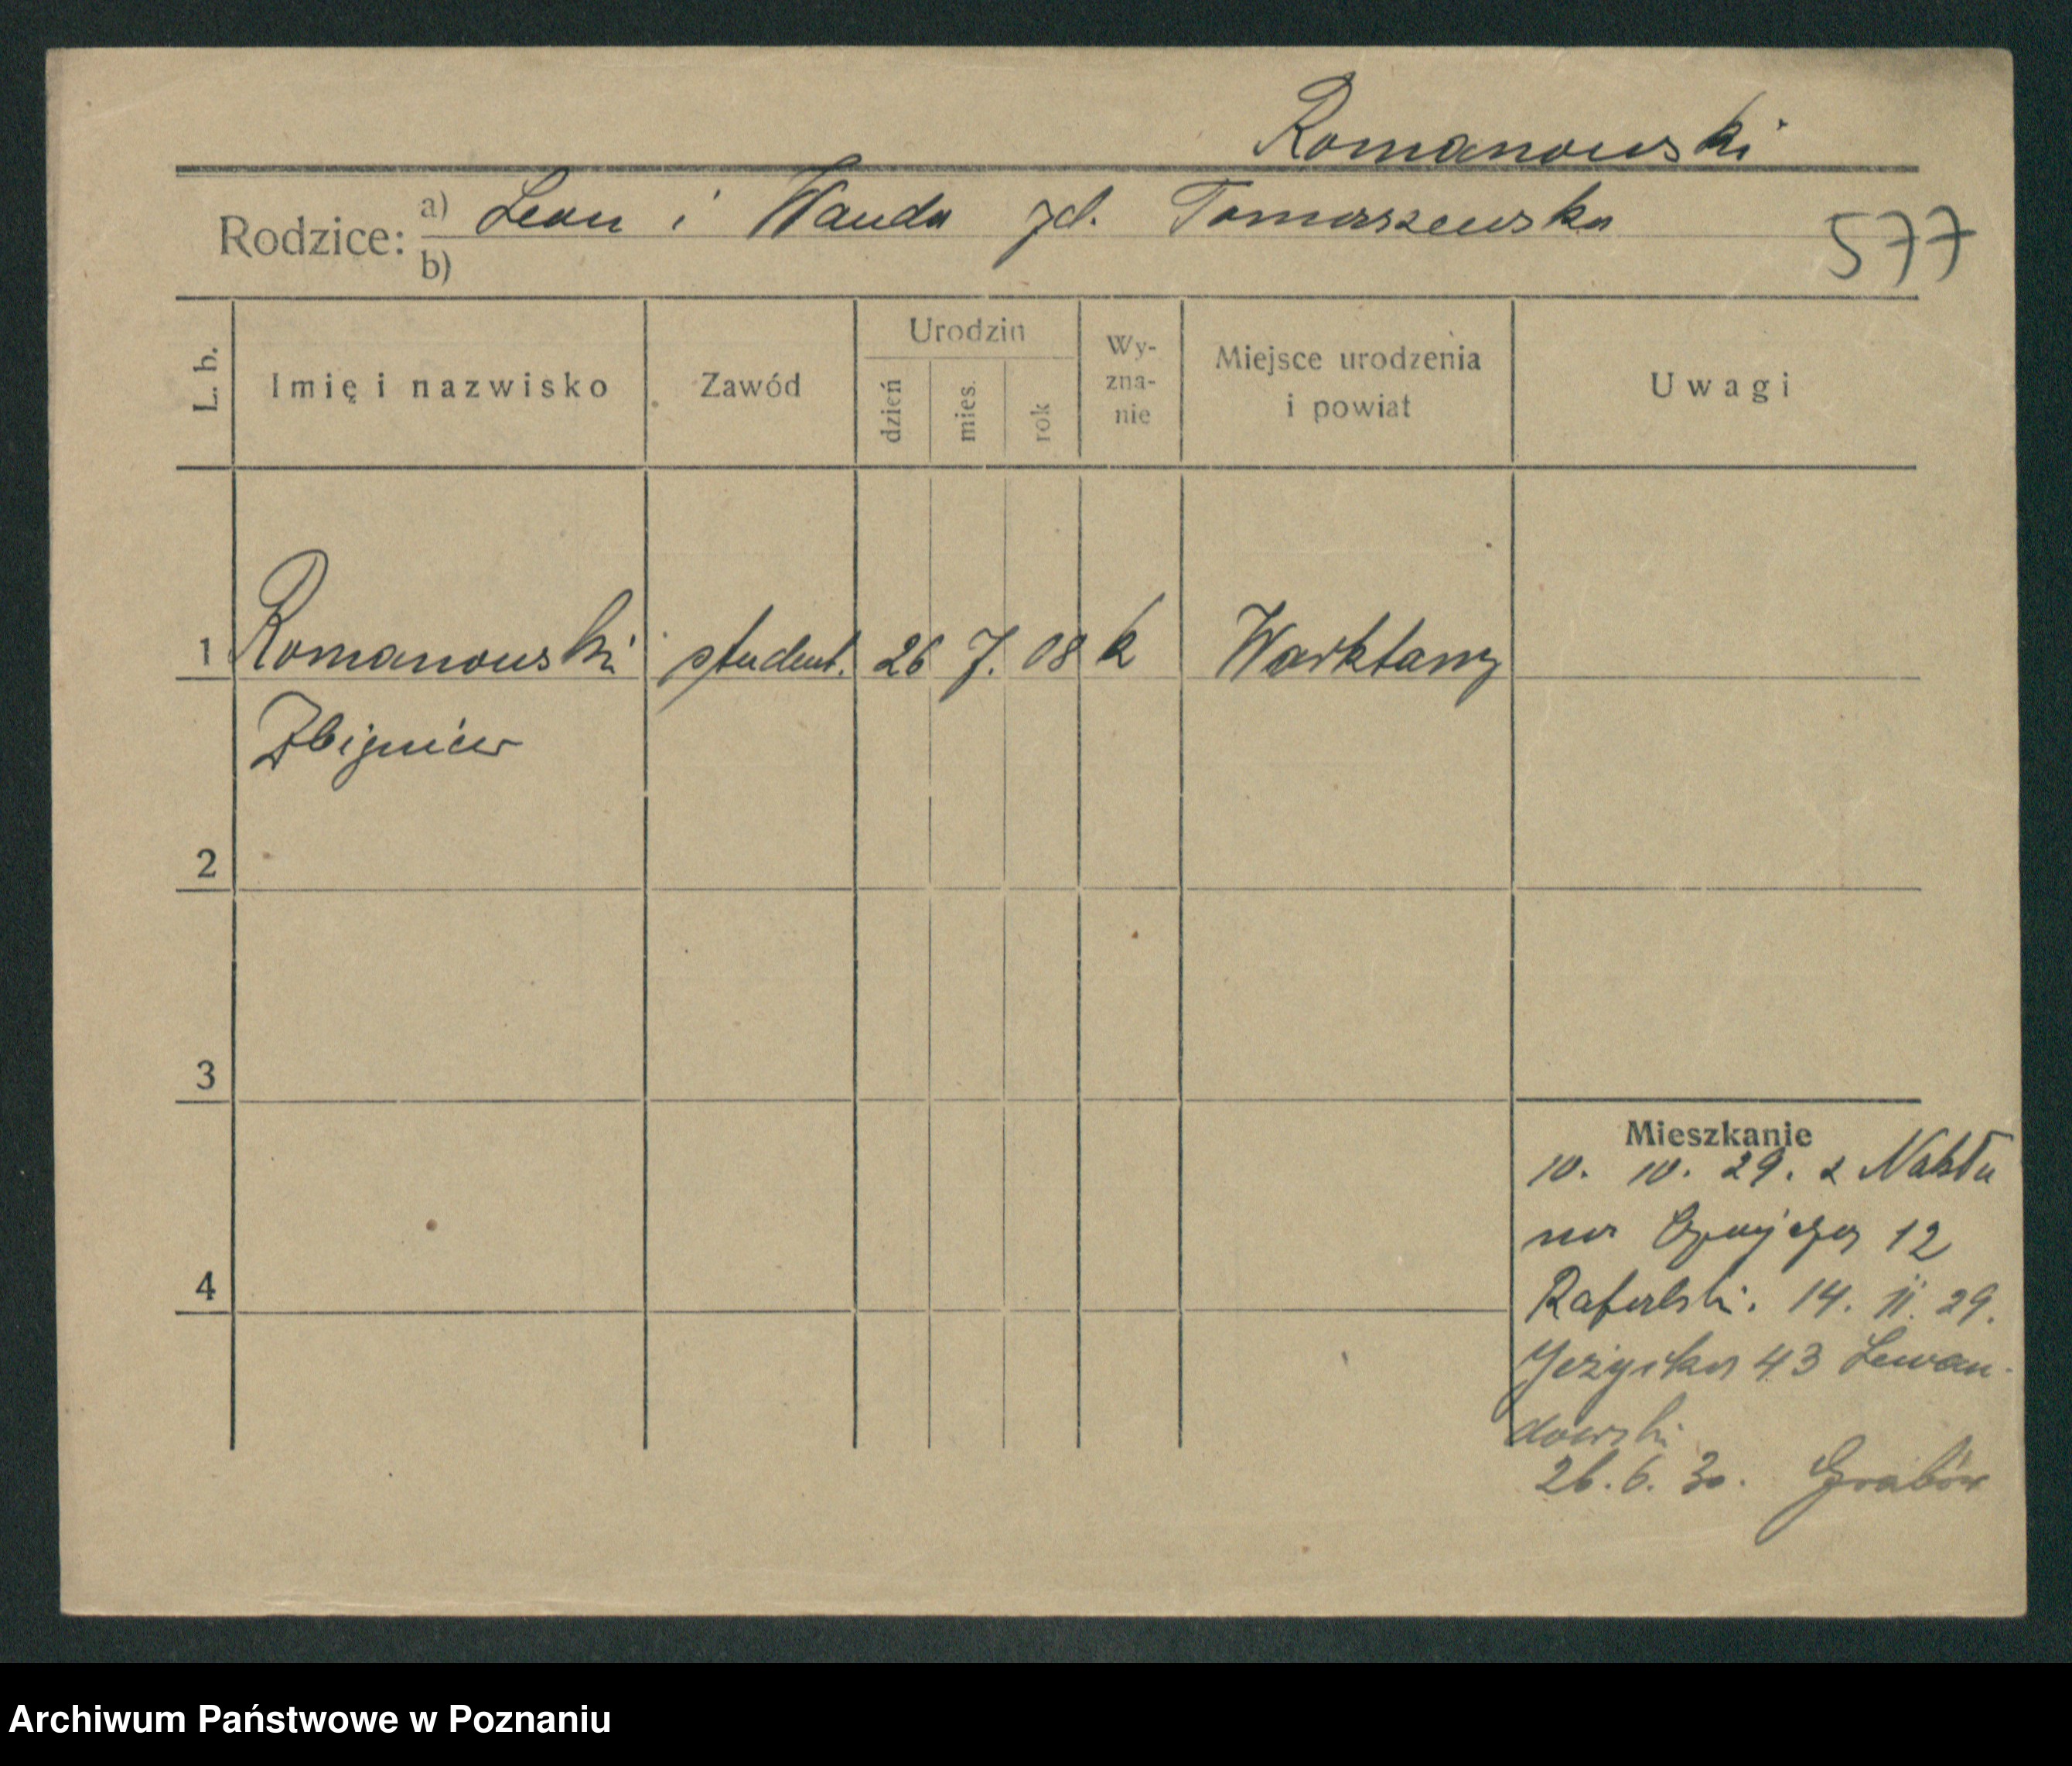 Romanowski
Rodzice: a) Leon i Wanda zd. Tomaszewska
b)
577
L. b. Imię i nazwisko Zawód Urodzin dzień mies. rok Wy-zna-nie Miejsce urodzenia i powiat Uwagi
1 Romanowski student. 26 7. 08 k Warktany
Zbigniew
2
3
Mieszkanie
10. 10. 29. z Nakła
na 12
4
Rafalski. 14. 11. 29.
Jeżycka 43 Lewan-
dowski
26. 6. 30. Grabów
Archiwum Państwowe w Poznaniu